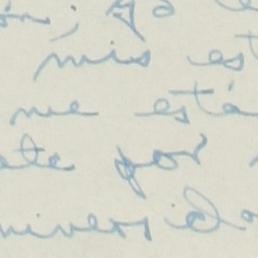 mis est
me está
ate por
niversida